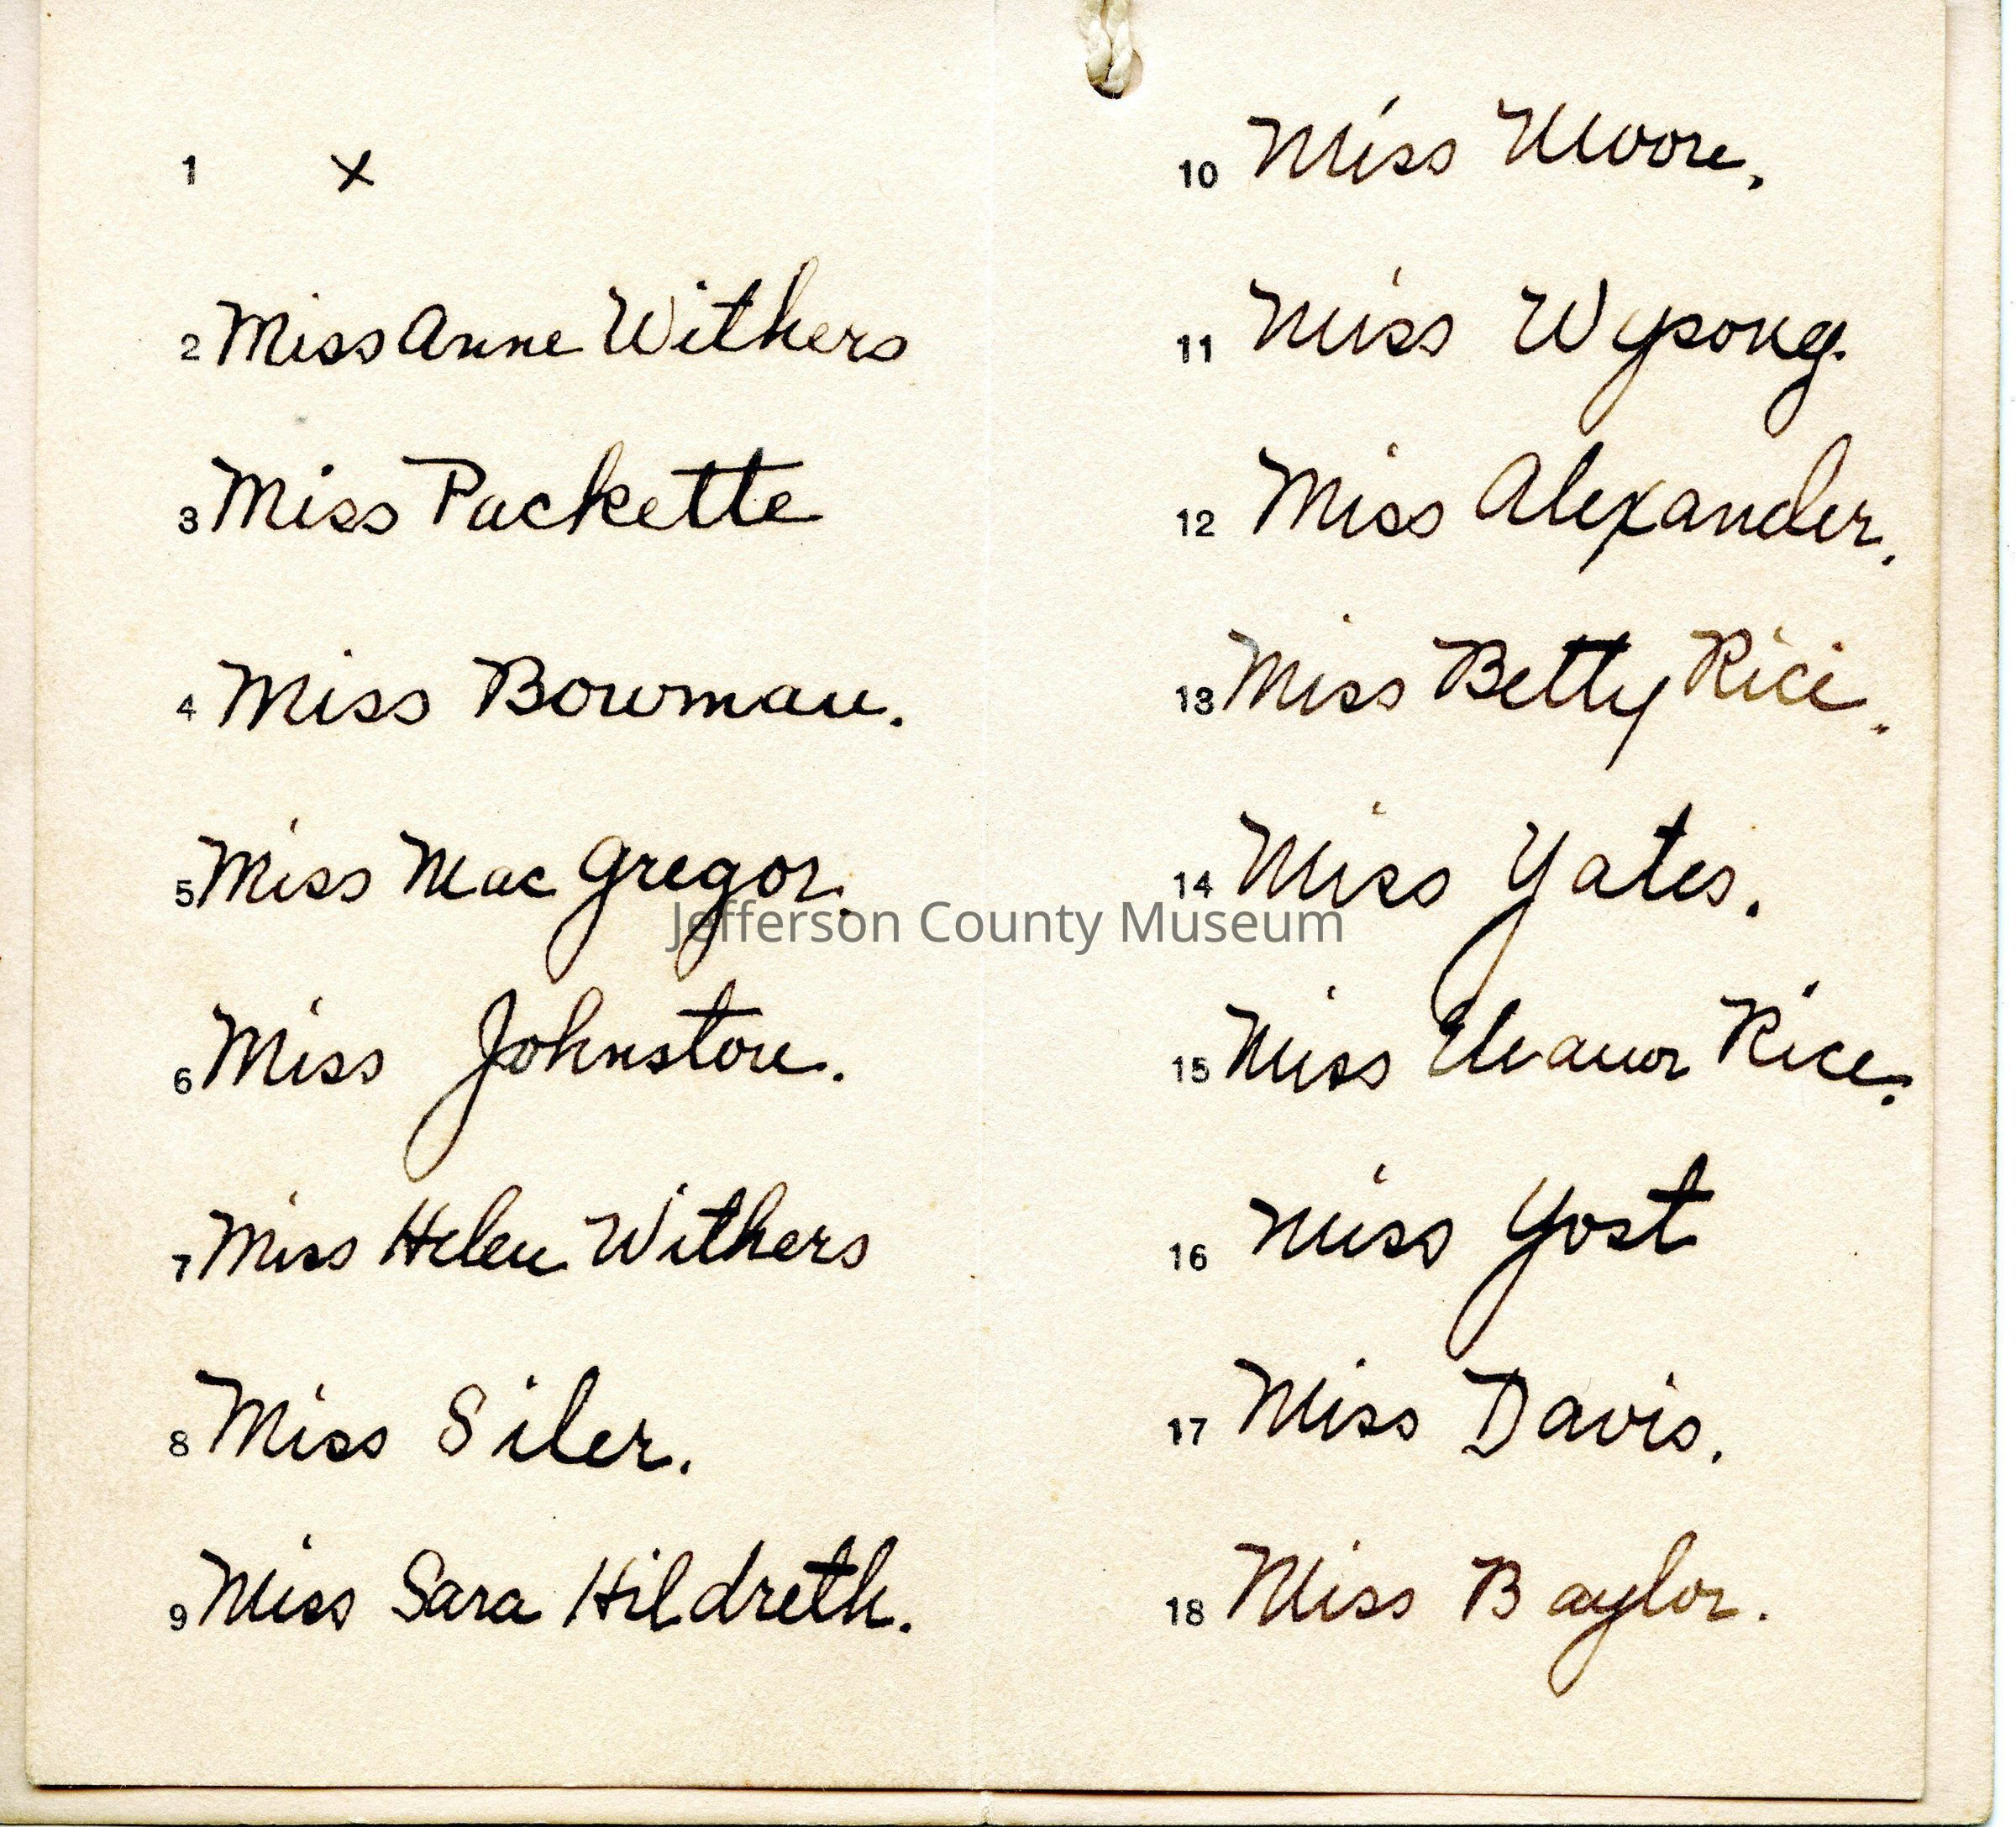 1 x
2 Miss Anne Withers
3 Miss Packette
4 Miss Bowman.
5 Miss Mac Gregor.
6 Miss Johnston.
7 Miss Helen Withers
8 Miss Siler.
9 Miss Sara Hildreth.
10 Miss Moore.
11 Miss Wysong.
12 Miss Alexander.
13 Miss Betty Rice.
14 Miss Yates.
15 Miss Eleanor Rice.
16 Miss Yost
17 Miss Davis.
18 Miss Baylor.
Jefferson County Museum